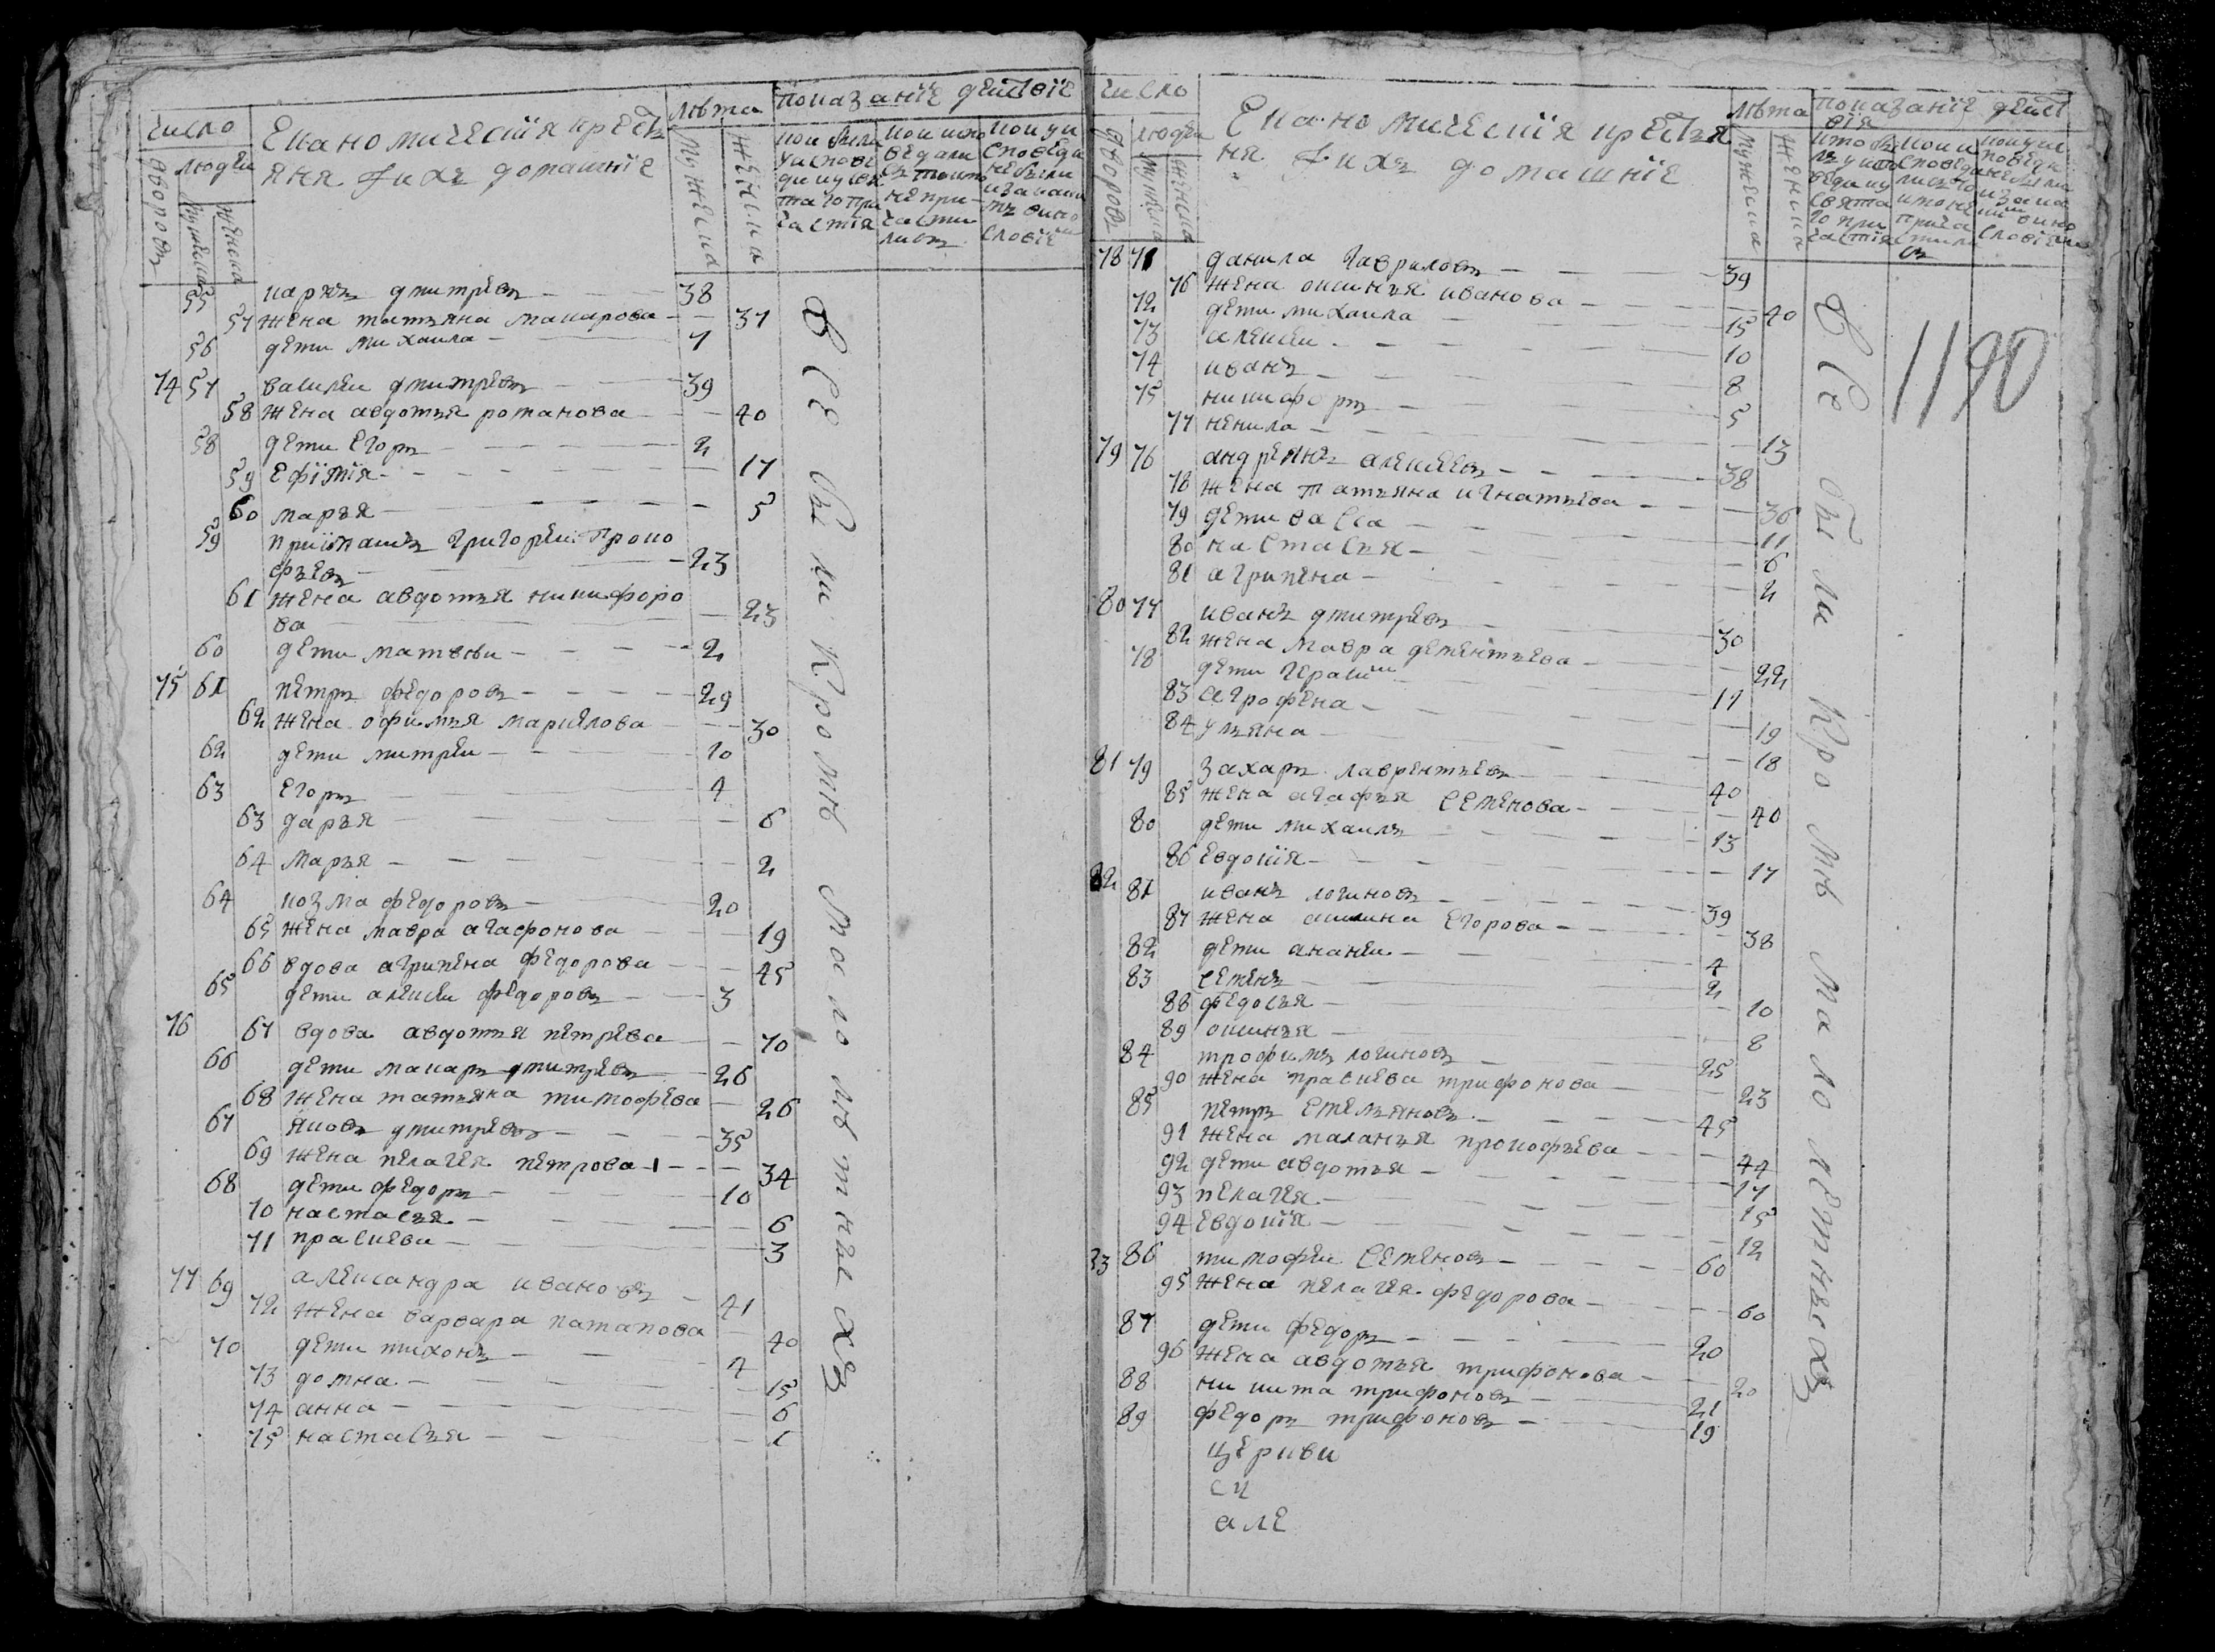 число
Економическия крестъ
яня и ихъ домашние
лѣта
показание действие
дворовъ
людей
мужеска
женска
мужеска
женска
кои были
у исповѣ
ди и у свя
таго при
частия
кои испо
ведали
сь токмо
не при-
части
лись
кои у и
споведи
не были
и за каки
мъ вино
словие
55 карпъ дмитревъ 38
57 жена татьяна макарова 37
56 дети михаила 7
74 57 василеи дмитревъ 39
58 жена авдотья романова 40
58 дети егоръ 2
59 ефимия 17
60 марья 5
59 приимашъ григореи проко
фьевъ 23
61 жена авдотья никифоро
ва 23
60 дети матвѣи 2
75 61 петръ федоровъ 29
62 жена офимья маркелова 30
62 дети митреи 10
63 егоръ 4
63 дарья 6
64 марья 2
64 козма федоровъ 20
65 жена мавра агафонова 19
66 вдова агрипена федорова 45
65 дети алексеи федоровъ 3
76 67 вдова авдотья петрева 70
66 дети макаръ дмитревъ 26
68 жена татьяна тимофева 26
67 яковъ дмитревъ 35
69 жена пелагея петрова 34
68 дети федоръ 10
70 настасья 6
71 прасковя 3
77 69 александра ивановъ 41
72 жена варвара патапова 40
70 дети тихонъ 4
73 домна 15
74 анна 6
75 настасья 1
все были кромѣ малолѣтныхъ
число
Економическия крестья
ня и ихъ домашние
лѣта
показание дейст
вия
дворовъ
людей
мужеска
женска
мужеска
женска
78 71 данила гавриловъ 39
76 жена оксинья иванова 40
72 дети михаила 15
73 алексеи 10
74 иванъ 8
75 никифоръ 5
77 ненила 13
79 76 андреянъ алексеевъ 38
78 жена татьяна игнатьева 36
79 дети васса 11
80 настасья 6
81 агрипена 2
80 77 иванъ дмитревъ 30
82 жена мавра дементьева 22
78 дети герасим 11
83 агрофена 19
84 ульяна 18
81 79 захаръ лаврентьевъ 40
85 жена агафья семенова 40
80 дети михаилъ 13
86 евдокия 17
82 81 иванъ логиновъ 39
87 жена акилина егорова 38
82 дети ананеи 4
83 семенъ 2
88 федосья 10
89 оксинья 8
84 трофимъ логиновъ 25
90 жена прасковя трифонова 23
85 петръ емельяновъ 45
91 жена маланья прокофьева 44
92 дети авдотья 17
93 пелагея 15
94 евдокия 12
83 86 тимофеи семеновъ 60
95 жена пелагея федорова 60
87 дети федоръ 20
96 жена авдотья трифонова 20
88 никита трифоновъ 21
89 федоръ трифоновъ 19
церкви
сц
але
все были кромѣ малолетныхъ
1190